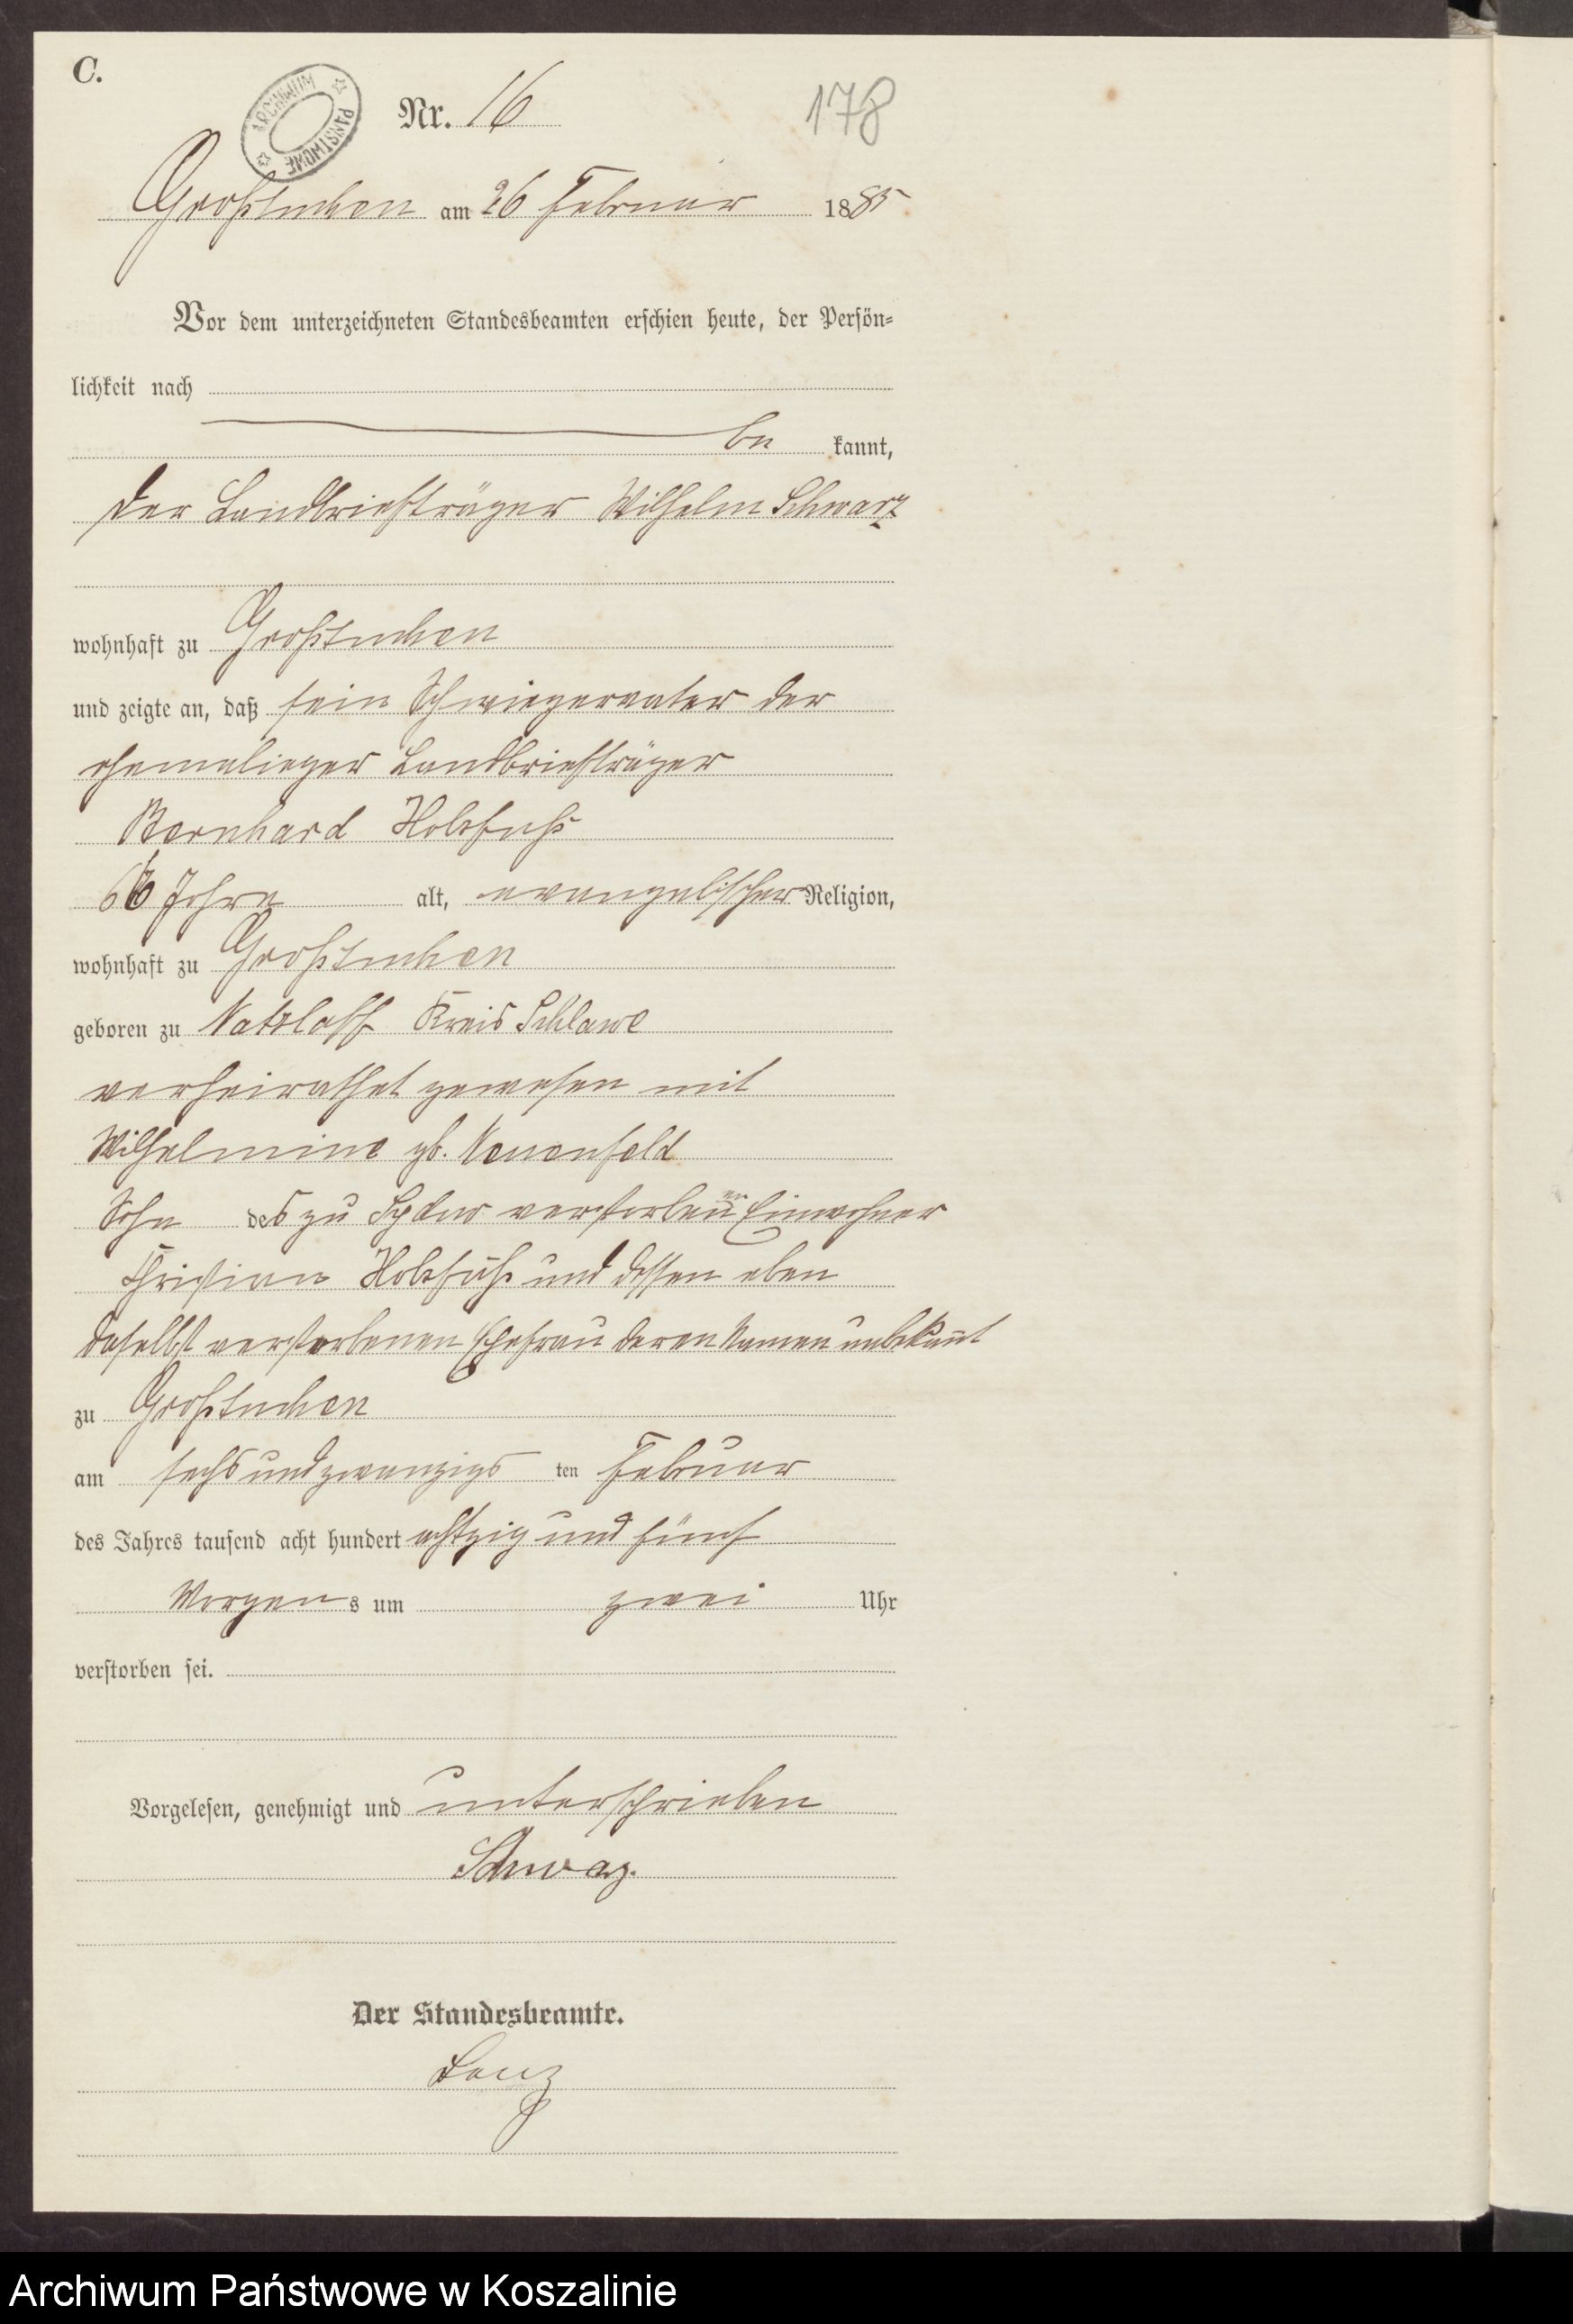 C.
ARCHIWUM PAŃSTWOWE
Nr. 16
178
Großtuchen am 26 Februar 1885
Vor dem unterzeichneten Standesbeamten erschien heute, der Persön-
lichkeit nach
be kannt,
der Landbriefträger Wilhelm Schwarz
wohnhaft zu Großtuchen
und zeigte an, daß sein Schwiegervater der
ehemalieger Landbriefträger
Bernhard Holzfuß
66 Jahre alt, evangelischer Religion,
wohnhaft zu Großtuchen
geboren zu Natzlaff Kreis Schlawe
verheirathet gewesen mit
Wilhelmine gb. Neuenfeld
Sohn des zu Sydow verstorbenen Einwohner
Christian Holzfuß und dessen eben
daselbst verstorbenen Ehefrau deren Namen unbekannt
zu Großtuchen
am sechsundzwanzigs ten Februar
des Jahres tausend acht hundert achtzig und fünf
Morgen s um zwei Uhr
verstorben sei.
Vorgelesen, genehmigt und unterschrieben
Schwarz.
Der Standesbeamte.
Lenz
Archiwum Państwowe w Koszalinie